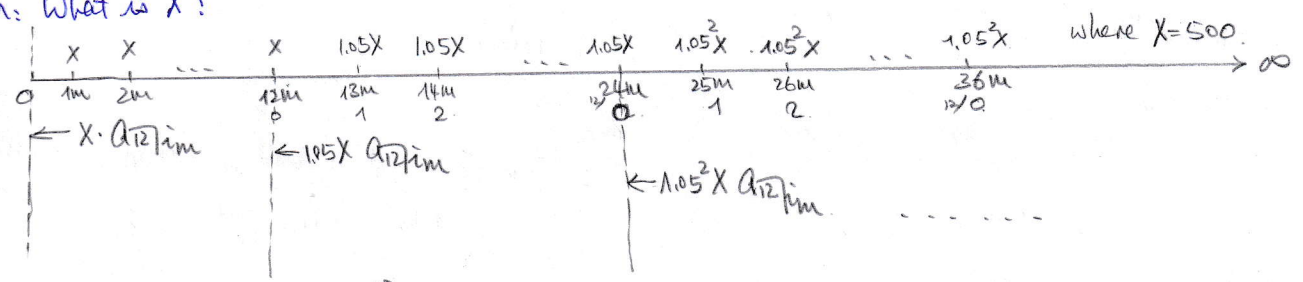 What is X?
X X ... X 1.05X 1.05X ... 1.05X 1.05²X 1.05²X ... 1.05²X where X=500.
0 1m 2m 12m 13m 14m 24m 25m 26m 36m ∞
0 1 2 12/0 1 2 12/0
← X · a12┐im ← 1.05X a12┐im
← 1.05²X a12┐im
.......